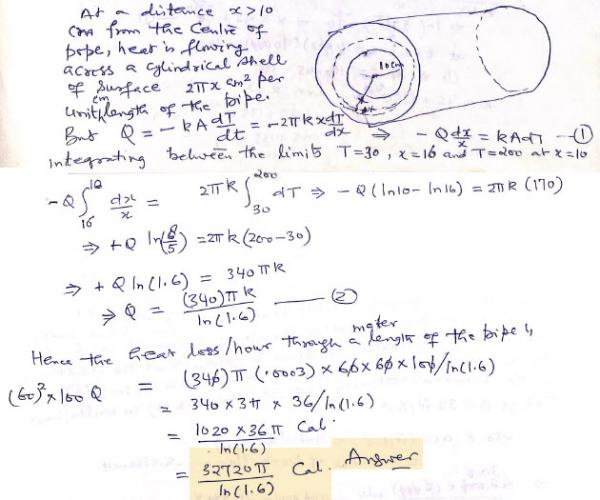 At a distance x>10
cm from the centre of
pope, heat is flowing
across a cylindrical shell
of surface 2πx cm² per
unit cm length of the pipe.
But Q = -kA dT/dt = -2πkx dT/dx ⇒ -Q dx/x = kAdT ①
10cm
dx
integrating between the limits T=30, x=16 and T=200 at x=10
-Q ∫₁₆¹⁰ dx/x = 2πk ∫₃₀²⁰⁰ dT ⇒ -Q (ln10 - ln16) = 2πk (170)
⇒ +Q ln(8/5) = 2πk (200-30)
⇒ +Q ln(1.6) = 340πk
⇒ Q = (340)πk / ln(1.6) ②
Hence the heat loss/hour through a meter length of the pipe is
(60)² × 100 Q = (340)π (.0003) × 60 × 60 × 100 / ln(1.6)
= 340 × 3π × 36 / ln(1.6)
= 1020 × 36π / ln(1.6) Cal.
= 32720π / ln(1.6) Cal. Answer